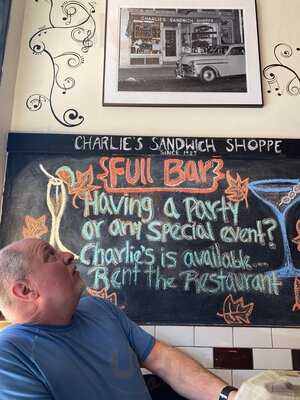 CHARLIE'S SANDWICH SHOPPE
CHARLIE'S SANDWICH SHOPPE
SINCE 1927
{Full Bar}
Having a party
or any special event?
Charlie's is available...
Rent the Restaurant